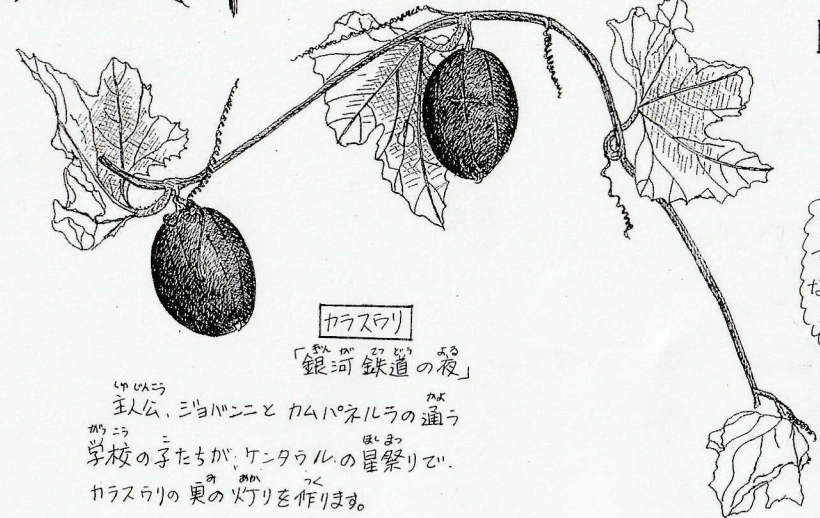 カラスウリ
「銀河鉄道の夜」
主人公、ジョバンニとカムパネルラの通う
学校の子たちが、ケンタウルの星祭りで、
カラスウリの実の灯りを作ります。